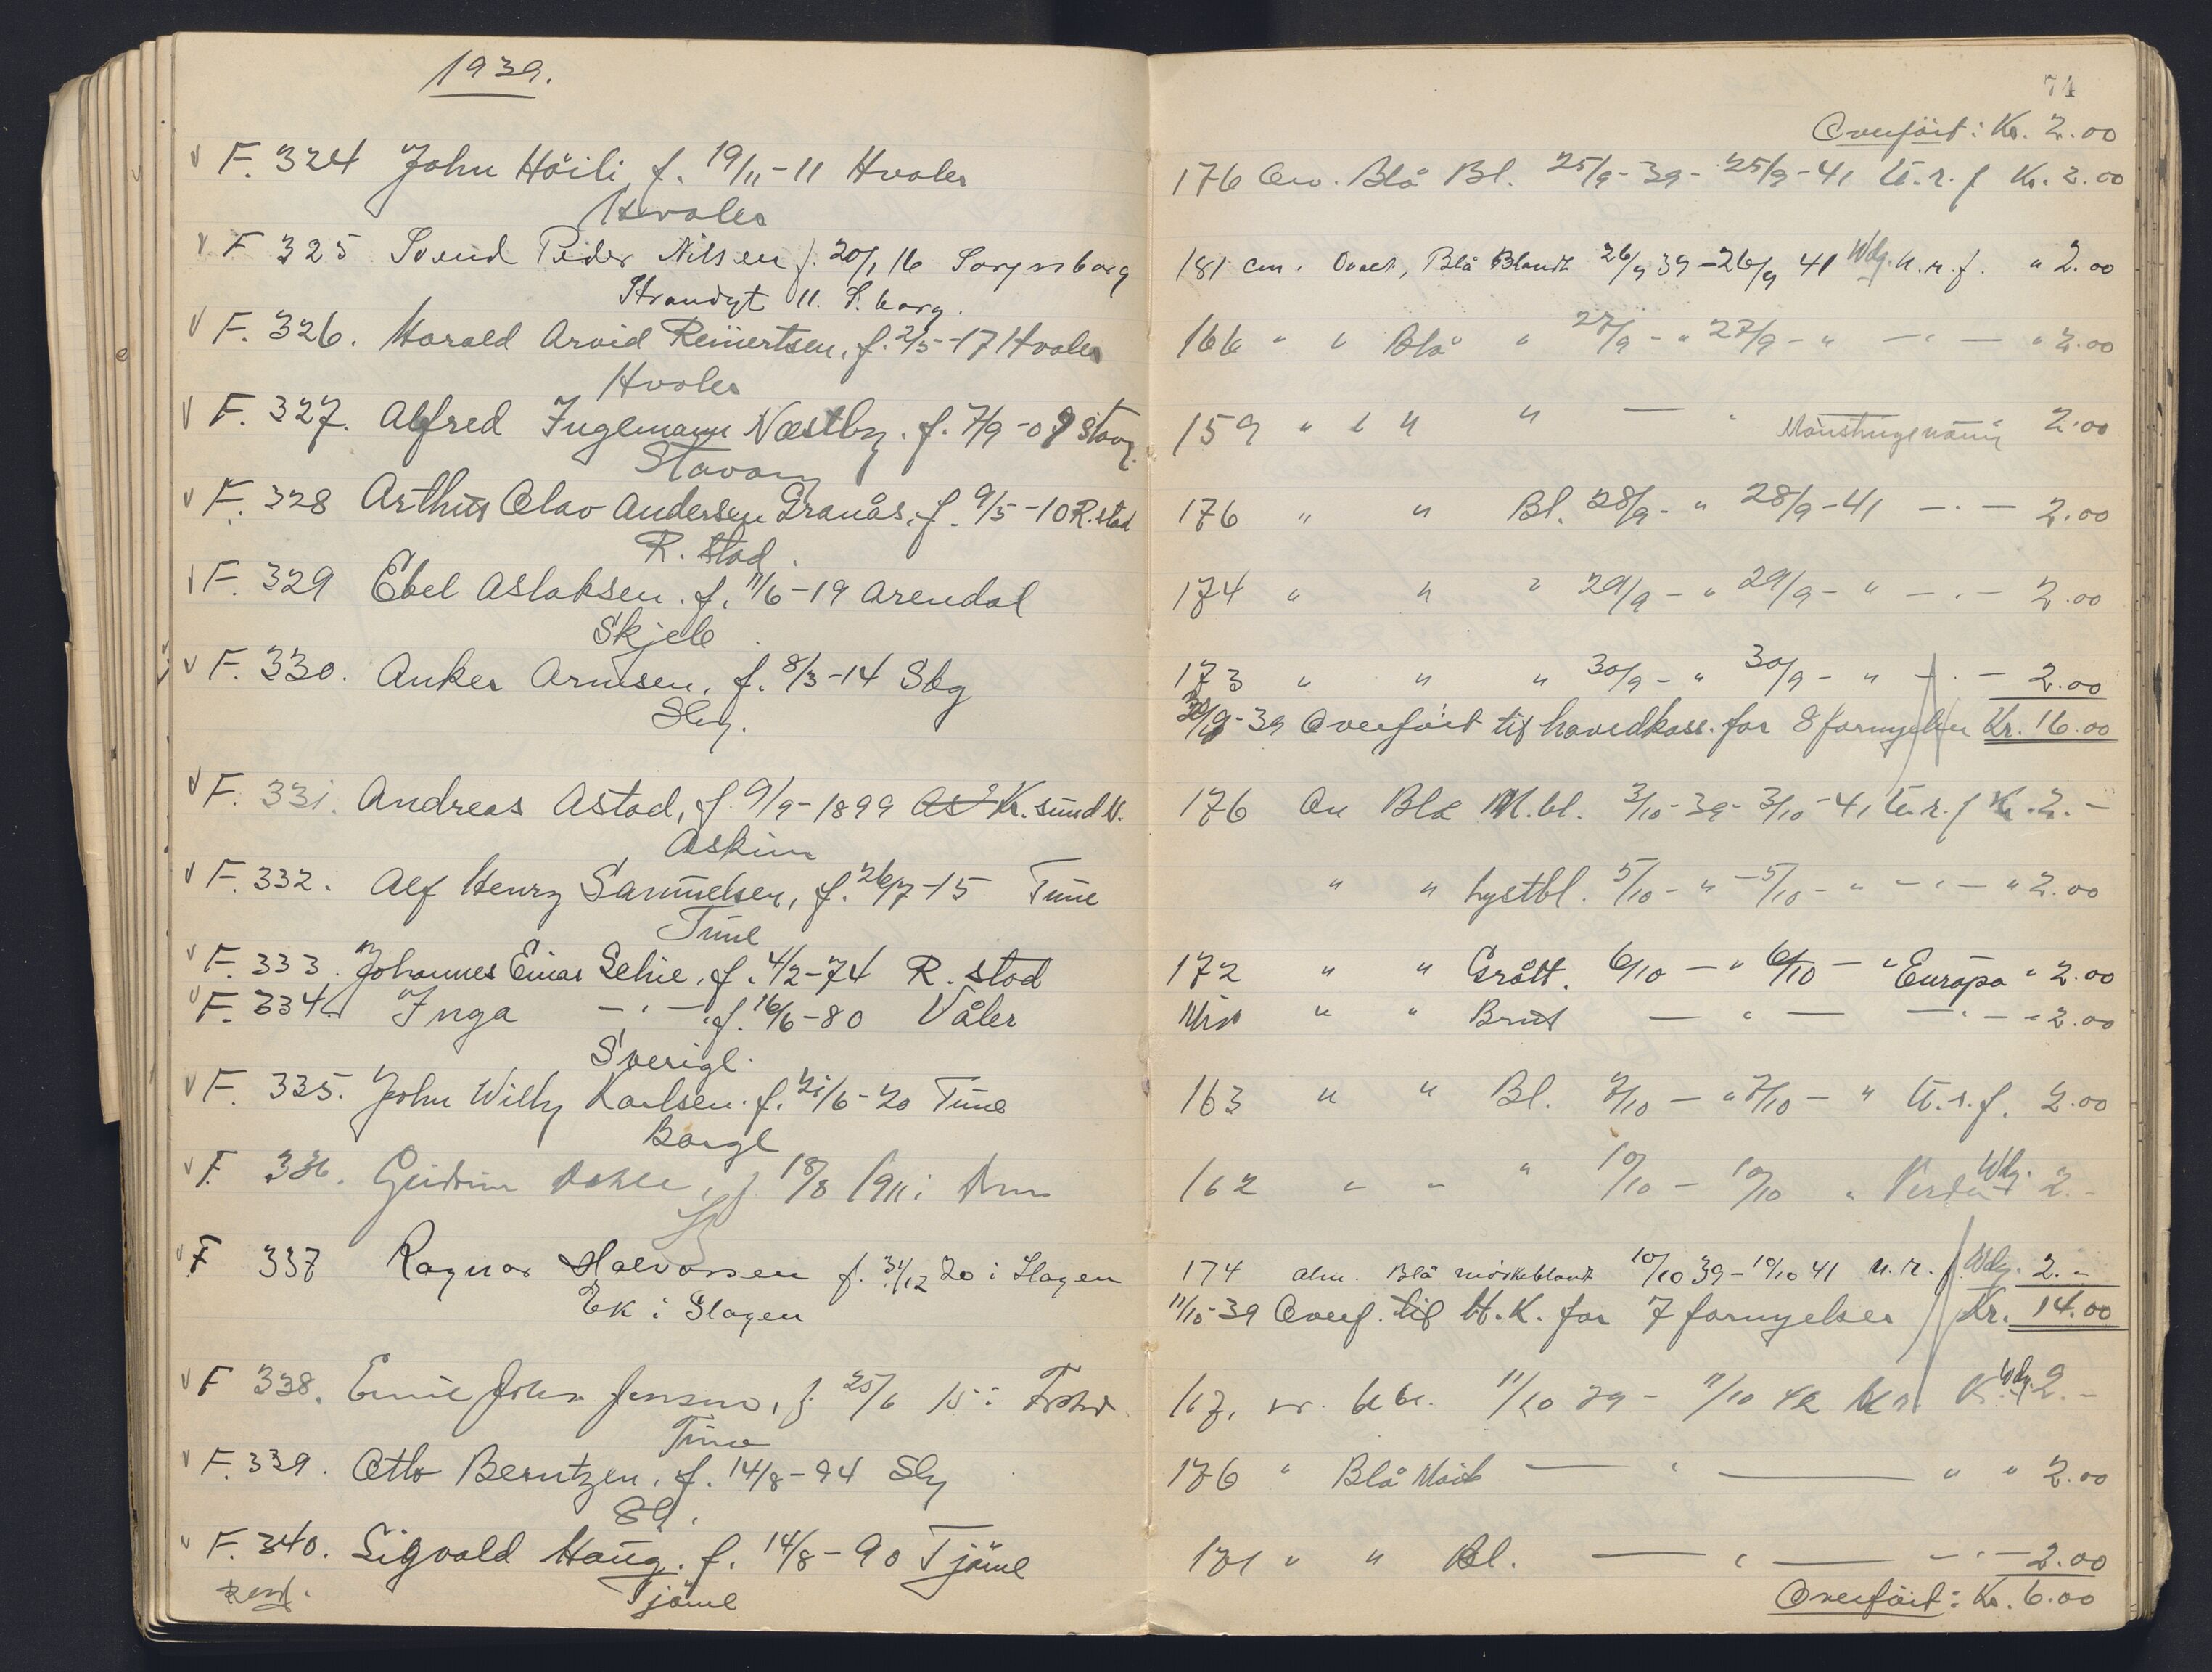 1939.
V F. 324 John Höili f. 19/11-11 Hvaler
Hvaler
V F. 325 Svend Peder Nilsen f. 20/1 16 Sarpsborg
Strandgt 11. S.borg.
V F. 326. Harald Arvid Reinertsen, f. 2/5-17 Hvaler
Hvaler
V F. 327. Alfred Ingemann Næstby. f. 7/9-09 Stavg.
Stavang
V F. 328 Arthur Olav Andersen Granås, f. 9/5-10 R.stad
R. stad.
V F. 329 Ebel Aslaksen. f. 11/6-19 Arendal
Skjeb
V F. 330. Anker Arnesen, f. 8/3-14 Sbg
Sbg.
V F. 331. Andreas Astad, f. 9/9-1899 Kr.sund N.
Askim
V F. 332. Alf Henry Samuelsen, f. 26/7-15 Tune
Tune
V F. 333. Johannes Einar Lehie, f. 4/2-74 R. stad
V F. 334. Inga — " — f. 16/6-80 Våler
Sverige.
V F. 335. John Willy Karlsen. f. 21/6-20 Tune
Borge
V F 336. Gudrun Dahle, f 18/8 1911 i
V F 337 Ragnar Halvorsen f. 31/12 20 i Slagen
Ek i Slagen
V F 338. Emil John Jensen, f. 25/6 15 i
Tune
V F. 339. Otto Berntzen, f. 14/8-94 Sbg
Sbg.
V F. 340. Sigvald Haug. f. 14/8-90 Tjöme
Tjöme
74
Overfört: Kr. 2.00
176 Ov. Blå Bl. 25/9-39- 25/9-41 U.r.f Kr. 2.00
181 cm. Ovalt, Blå Blondt 26/9 39-26/9 41 Wdg. U.r.f. " 2.00
166 " " Blå " 27/9 - " 27/9 - " — " — " 2.00
159 " " " " — " 2.00
176 " " Bl. 28/9- " 28/9-41 — . — 2.00
174 " " " 29/9 - " 29/9 - " — . — 2.00
173 " " " 30/9 - " 30/9 - " — . — 2.00
30/9-39 Overfört til hovedkass. for 8 fornyelser Kr. 16.00
176 Ov Blå M.bl. 3/10-39- 3/10-41 U.r.f Kr. 2.-
" " Lystbl. 5/10 - " - 5/10 - " — " — " 2.00
172 " " Grått. 6/10 — " 6/10 — " Europa " 2.00
" " Brunt — " — — " — " 2.00
163 " " Bl. 7/10 — " 7/10 — " U.r.f. 2.00
162 " " " 10/10 - 10/10 " Wdg. 2.-
174 alm. Blå mörkeblont 10/10 39-10/10 41 U.r.f. Wdg. 2.-
11/10-39 Overf. til H.K. for 7 fornyelser Kr. 14.00
11/10 39 - 11/10 Kr. Wdg. 2.-
176 " Blå Mörk — " — " " 2.00
171 " " Bl. — " — — " — 2.00
Overfört: Kr. 6.00